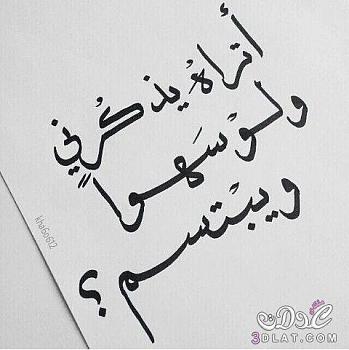 أتراهُ يذكُرني
ولوْ سَهواً
ويبْتسم ؟
khabo612
عدلات
3DLAT.COM